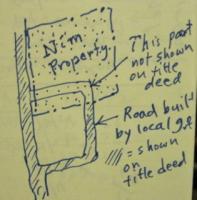 Nim
Property
This part
not shown
on title
deed
Road built
by local gt
/// = shown
on
title deed